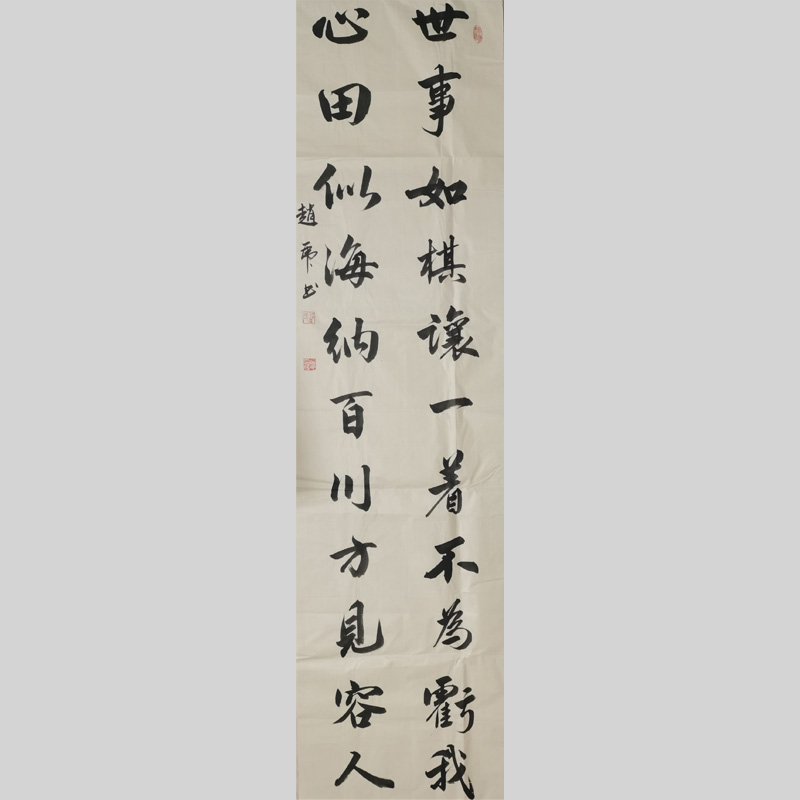 世事如棋讓一着不為虧我
心田似海納百川方見容人
趙虎书